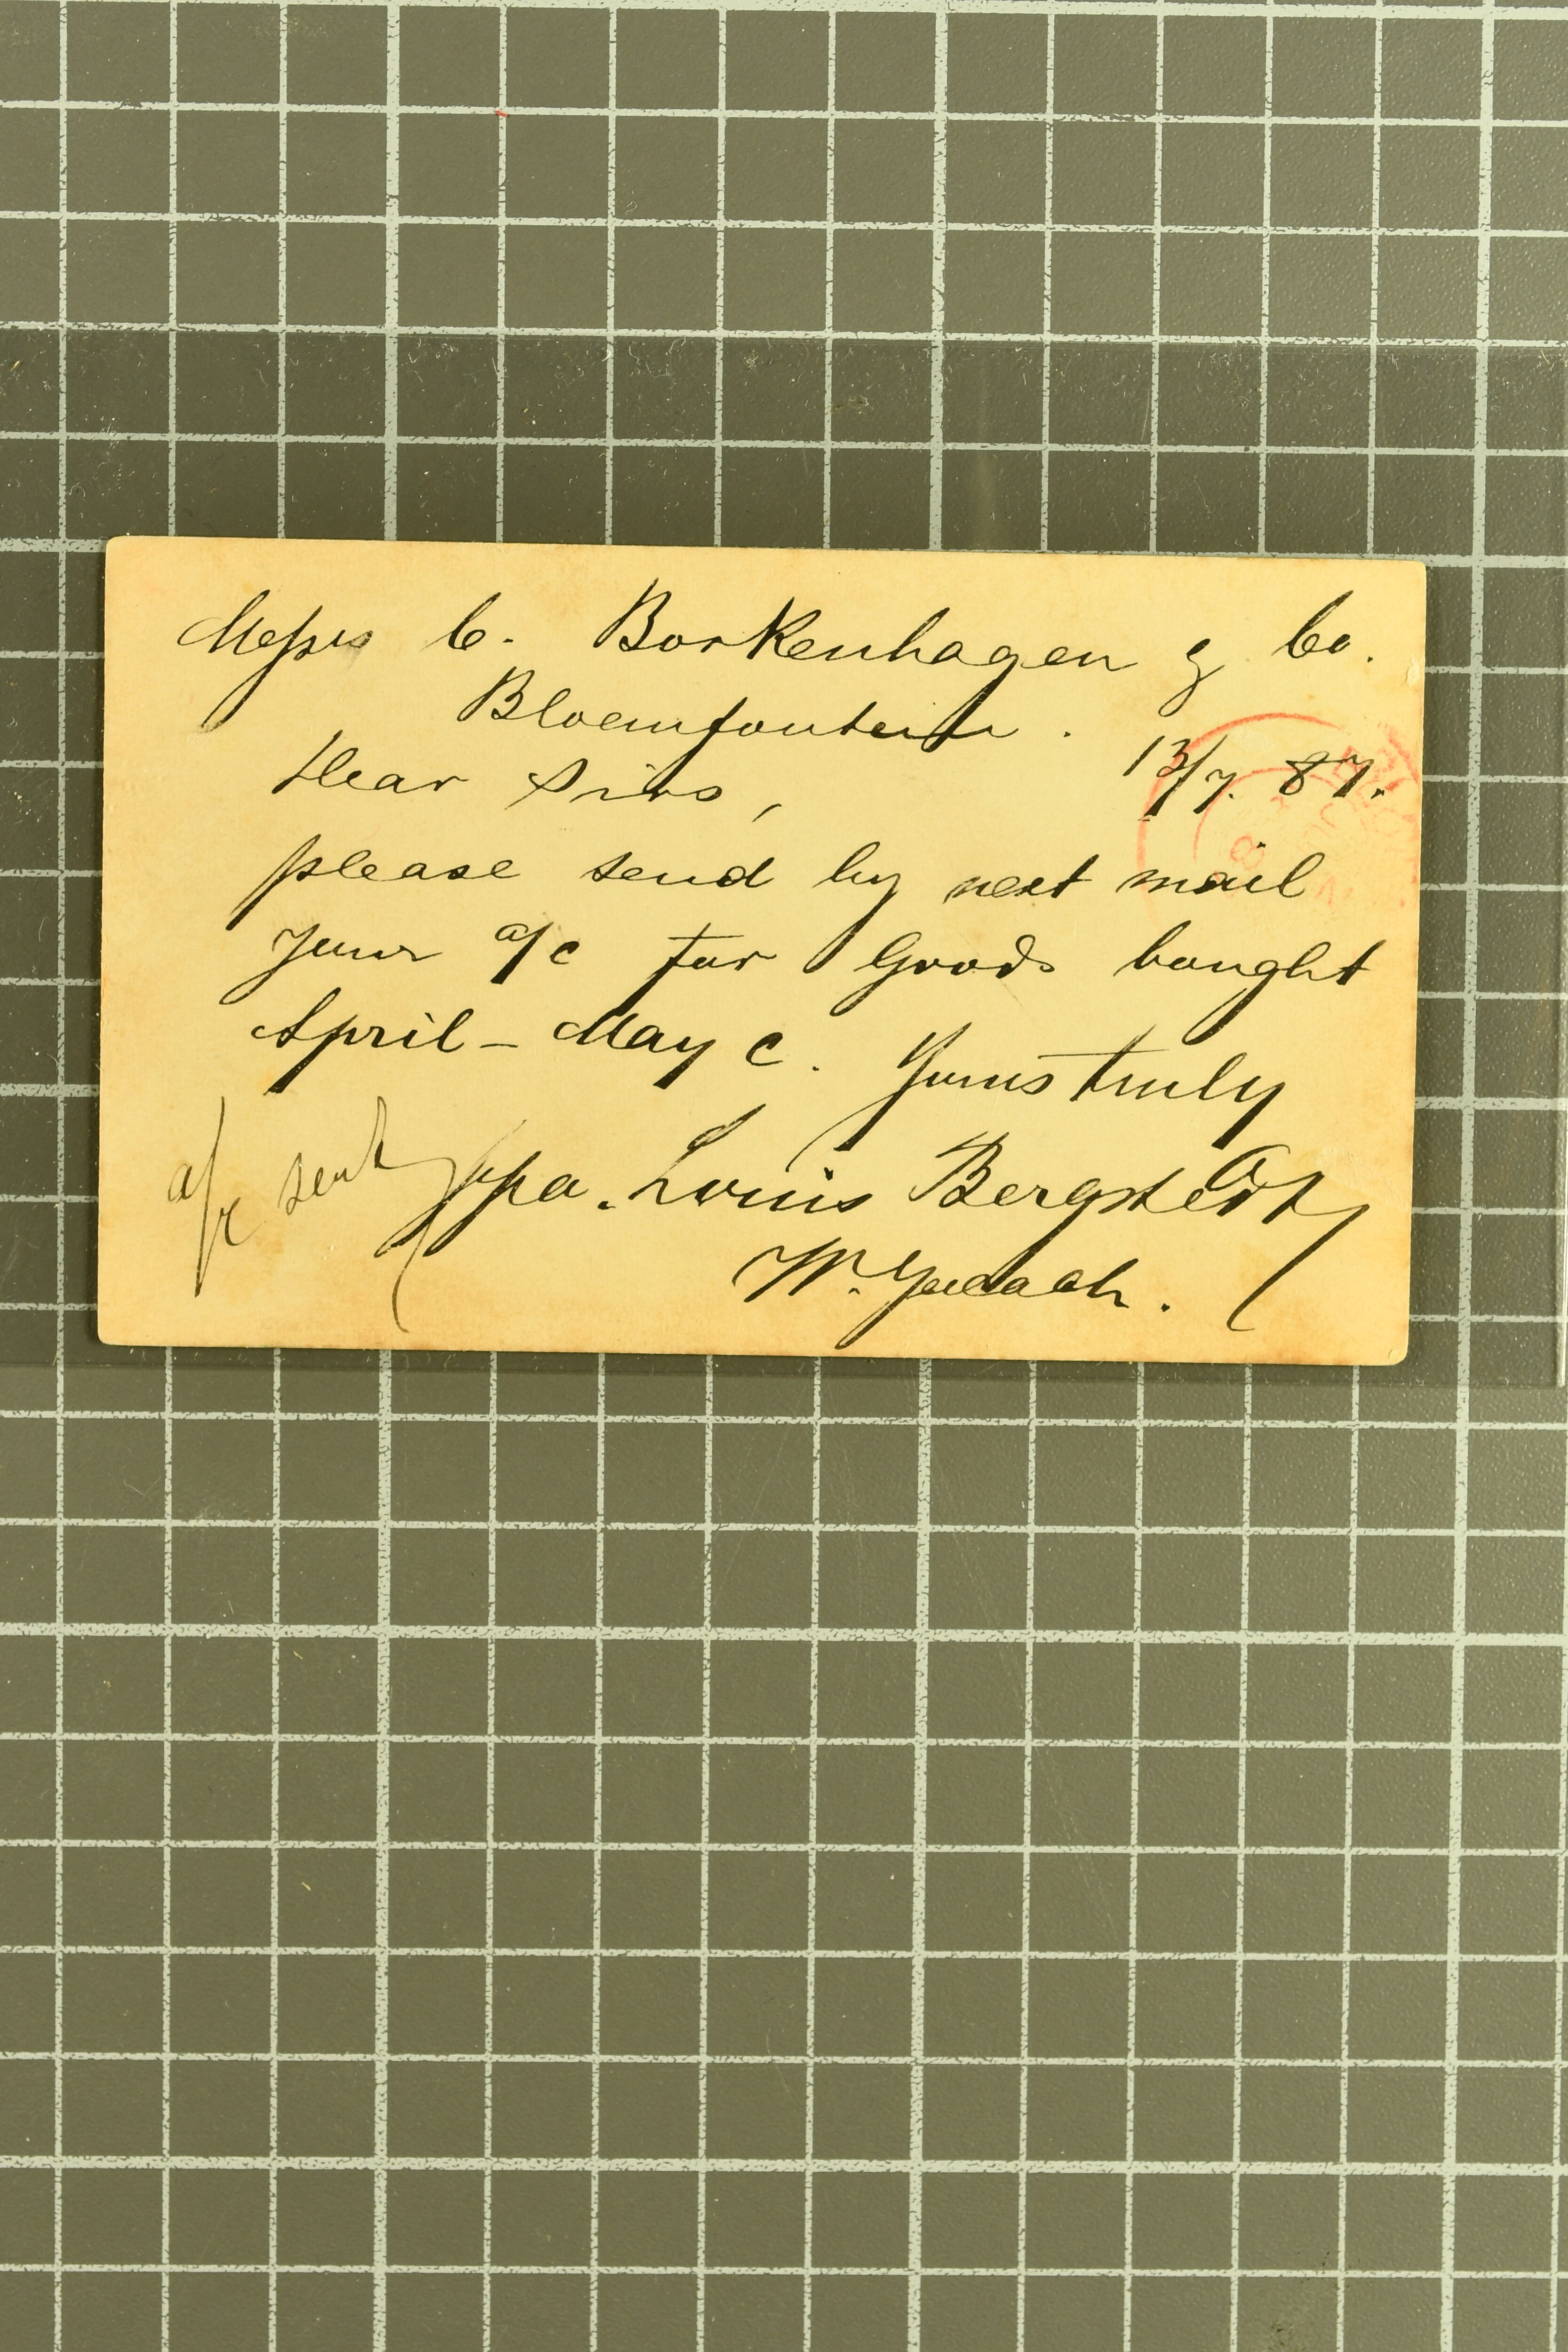 Messrs C. Borkenhagen & Co.
Bloemfontein.
Dear Sirs,
13/7. 87.
please send by next mail
your a/c for Goods bought
April - May c.
Yours truly
a/c sent
ppa. Louis Bergstedt
W.